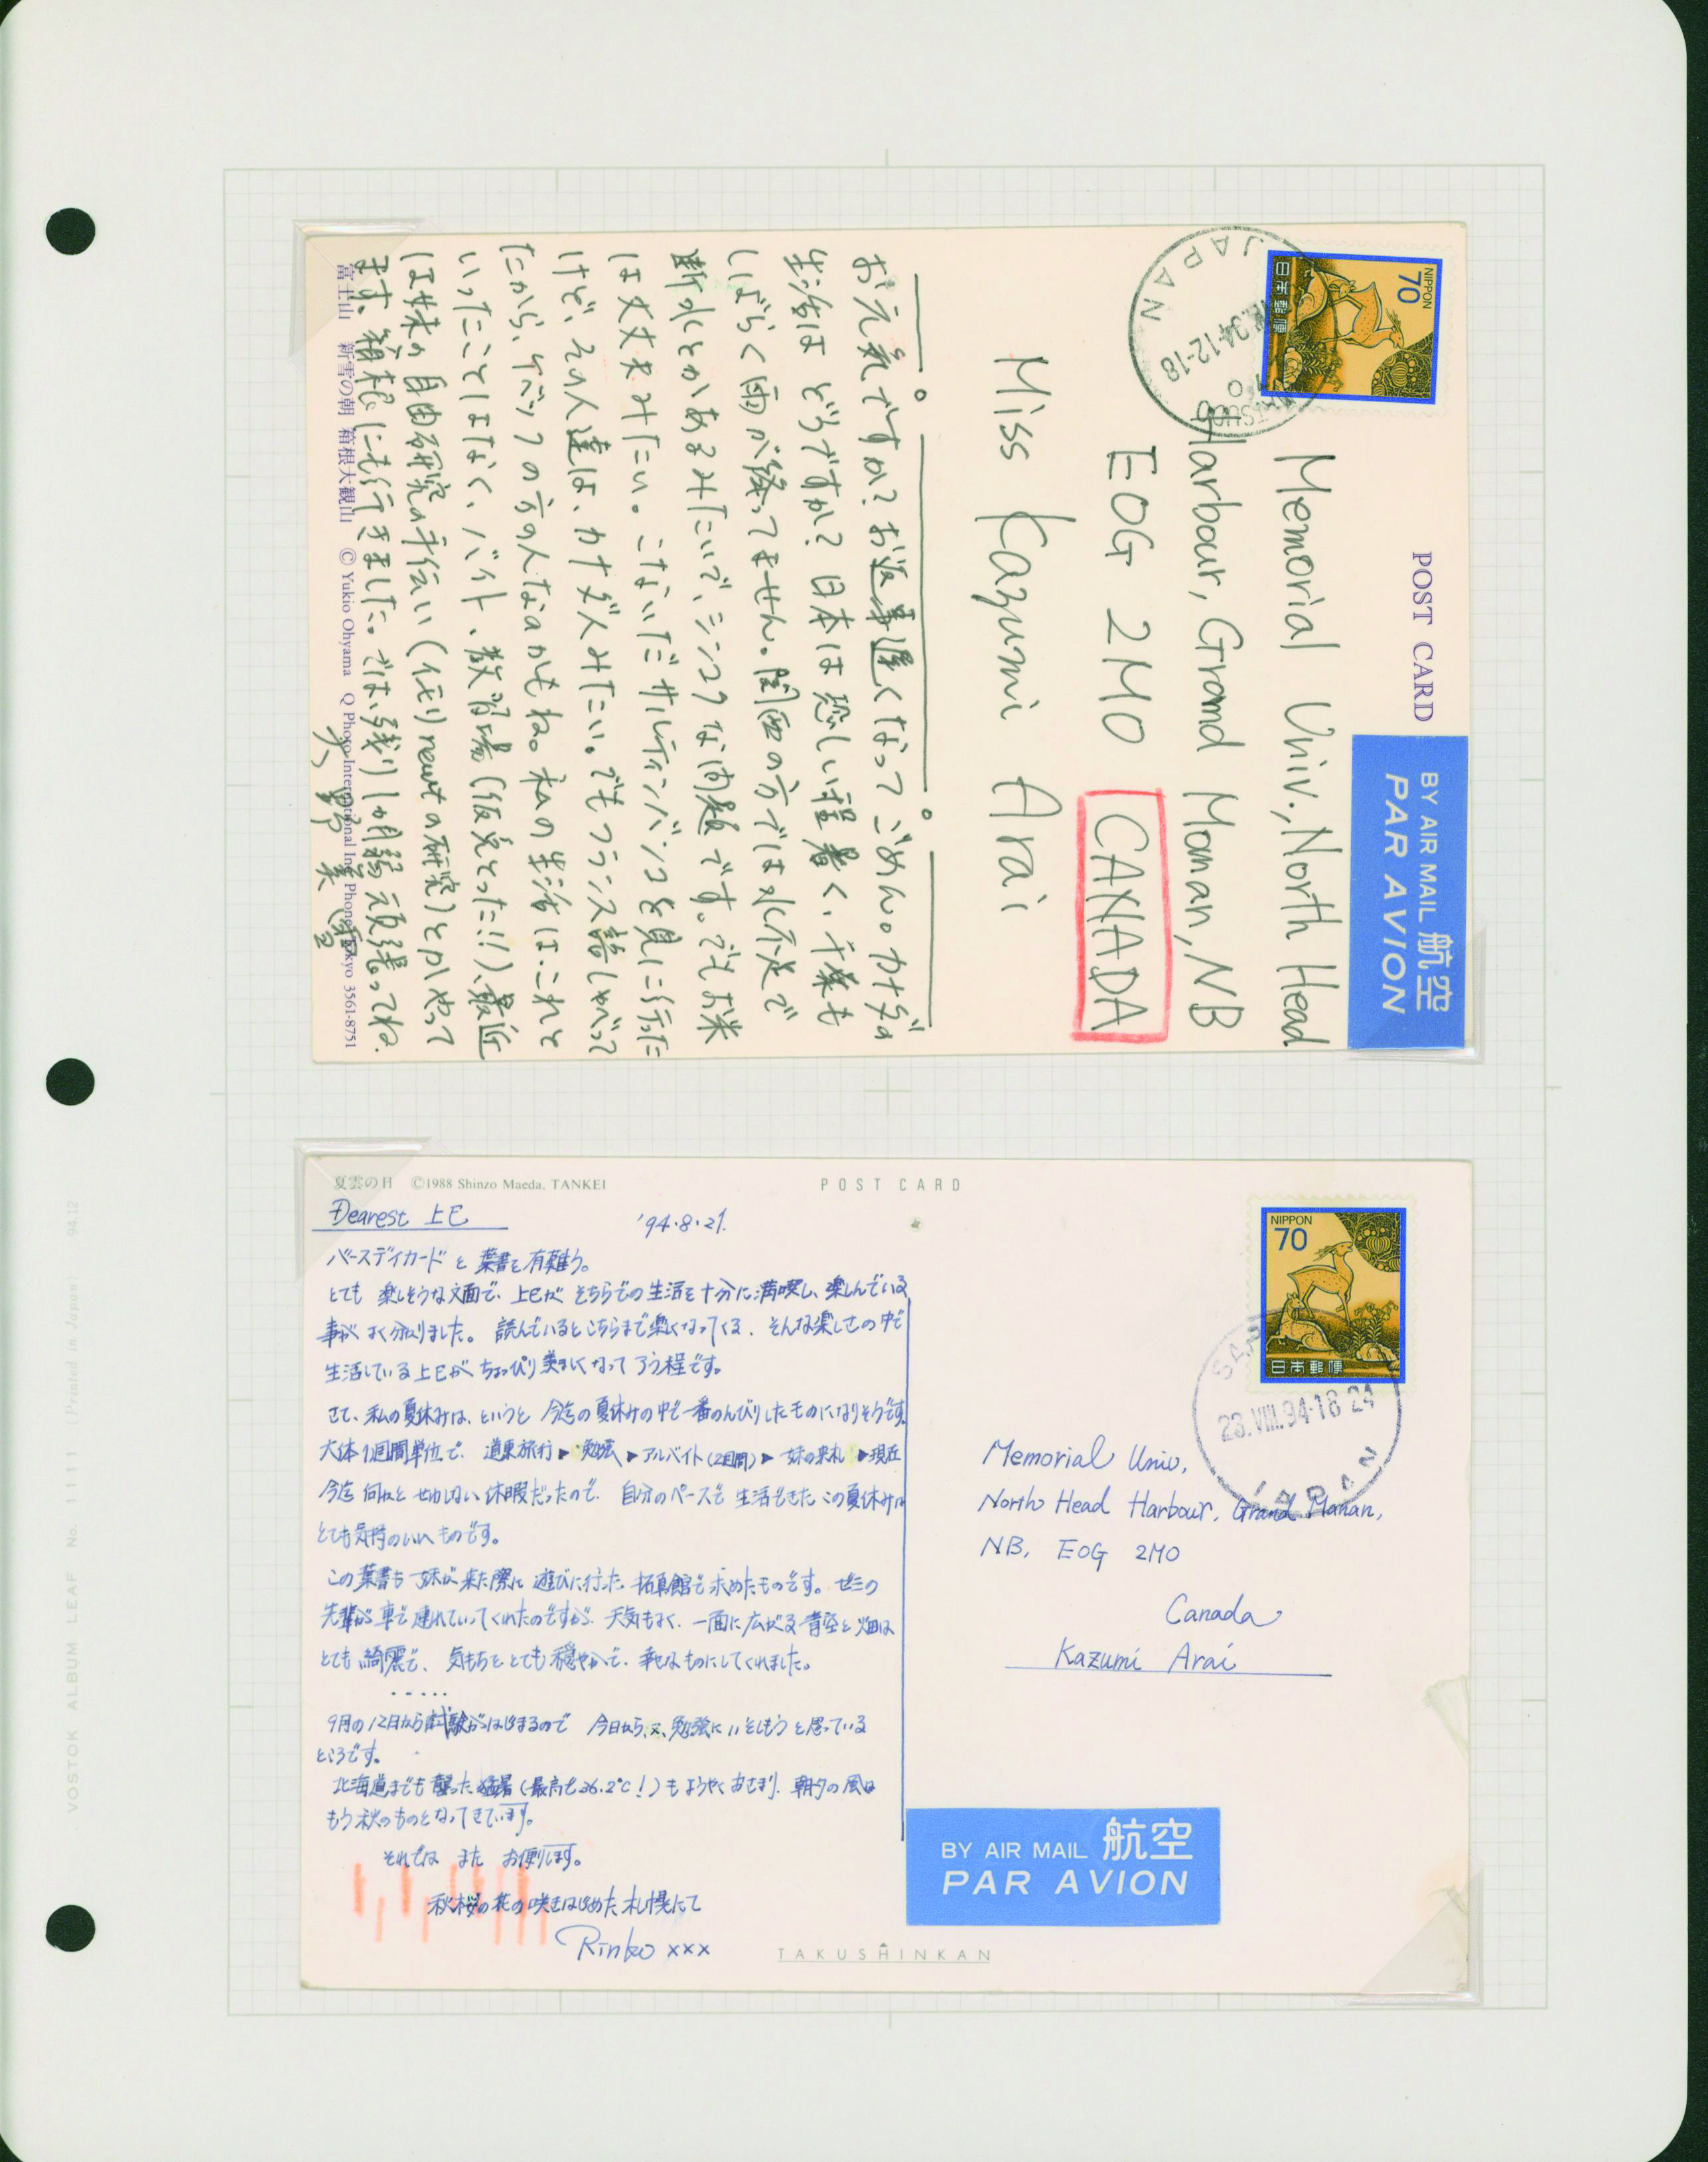 POST CARD
BY AIR MAIL 航空
PAR AVION
NIPPON
70
日本郵便
JAPAN
94-12-18
Memorial Univ., North Head
Harbour, Grand Manan, NB
E0G 2M0 CANADA
Miss Kazumi Arai
お元気ですか?お返事遅くなってごめん。カナダの
生活はどうですか?日本は恐しい程暑く、千葉も
しばらく雨が降ってません。関西の方では水不足で
断水とかあるみたいで、シンコクな問題です。でもお米
は大丈夫みたい。こないだサルティンバンコを見に行った
けど、その人達は、カナダ人みたい。でもフランス語しゃべって
たから、ケベックの方の人なのかもね。私の生活は、これと
いったことはなく、バイト、教習場(仮免とった!!)、最近
は妹の自由研究の手伝い( newtの研究)とかやって
ます。箱根にも行きました。では、残り1か月弱頑張ってね。
富士山 新雪の朝 箱根大観山 © Yukio Ohyama Q Photo International Inc. Phone Tokyo 3561-8751
夏雲の日 ©1988 Shinzo Maeda, TANKEI
POST CARD
Dearest 上巳
'94.8.21.
バースデイカードと葉書を有難う。
とても楽しそうな文面で、上巳がそちらでの生活を十分に満喫し、楽しんでいる
事がよく分りました。読んでいるとこちらまで楽しくなってくる、そんな楽しさの中で
生活している上巳がちょっぴり羨ましくなって了う程です。
さて、私の夏休みは、というと今迄の夏休みの中で一番のんびりしたものになりそうです。
大体1週間単位で、道東旅行▶勉強▶アルバイト(2週間)▶妹の来札▶現在
今迄何かとせわしない休暇だったので、自分のペースで生活できたこの夏休みは
とても気持のいいものです。
この葉書も妹が来た際に遊びに行った拓真館で求めたものです。ゼミの
先輩が車で連れていってくれたのですが、天気もよく、一面に広がる青空と畑は
とても綺麗で、気もちをとても穏やかで、幸せなものにしてくれました。
.....
9月の12日から試験がはじまるので今日から、又、勉強にいそしもうと思っている
ところです。
北海道までも襲った猛暑(最高で36.2℃!)もようやくおさまり、朝夕の風は
もう秋のものとなってきています。
それではまたお便りします。
秋桜の花の咲きはじめた札幌にて
Rinko xxx
TAKUSHINKAN
NIPPON
70
日本郵便
23.VIII.94.18 24
JAPAN
Memorial Univ,
North Head Harbour, Grand Manan,
NB, E0G 2M0
Canada
Kazumi Arai
BY AIR MAIL 航空
PAR AVION
VOSTOK ALBUM LEAF No. 1111 (Printed in Japan) 94.12